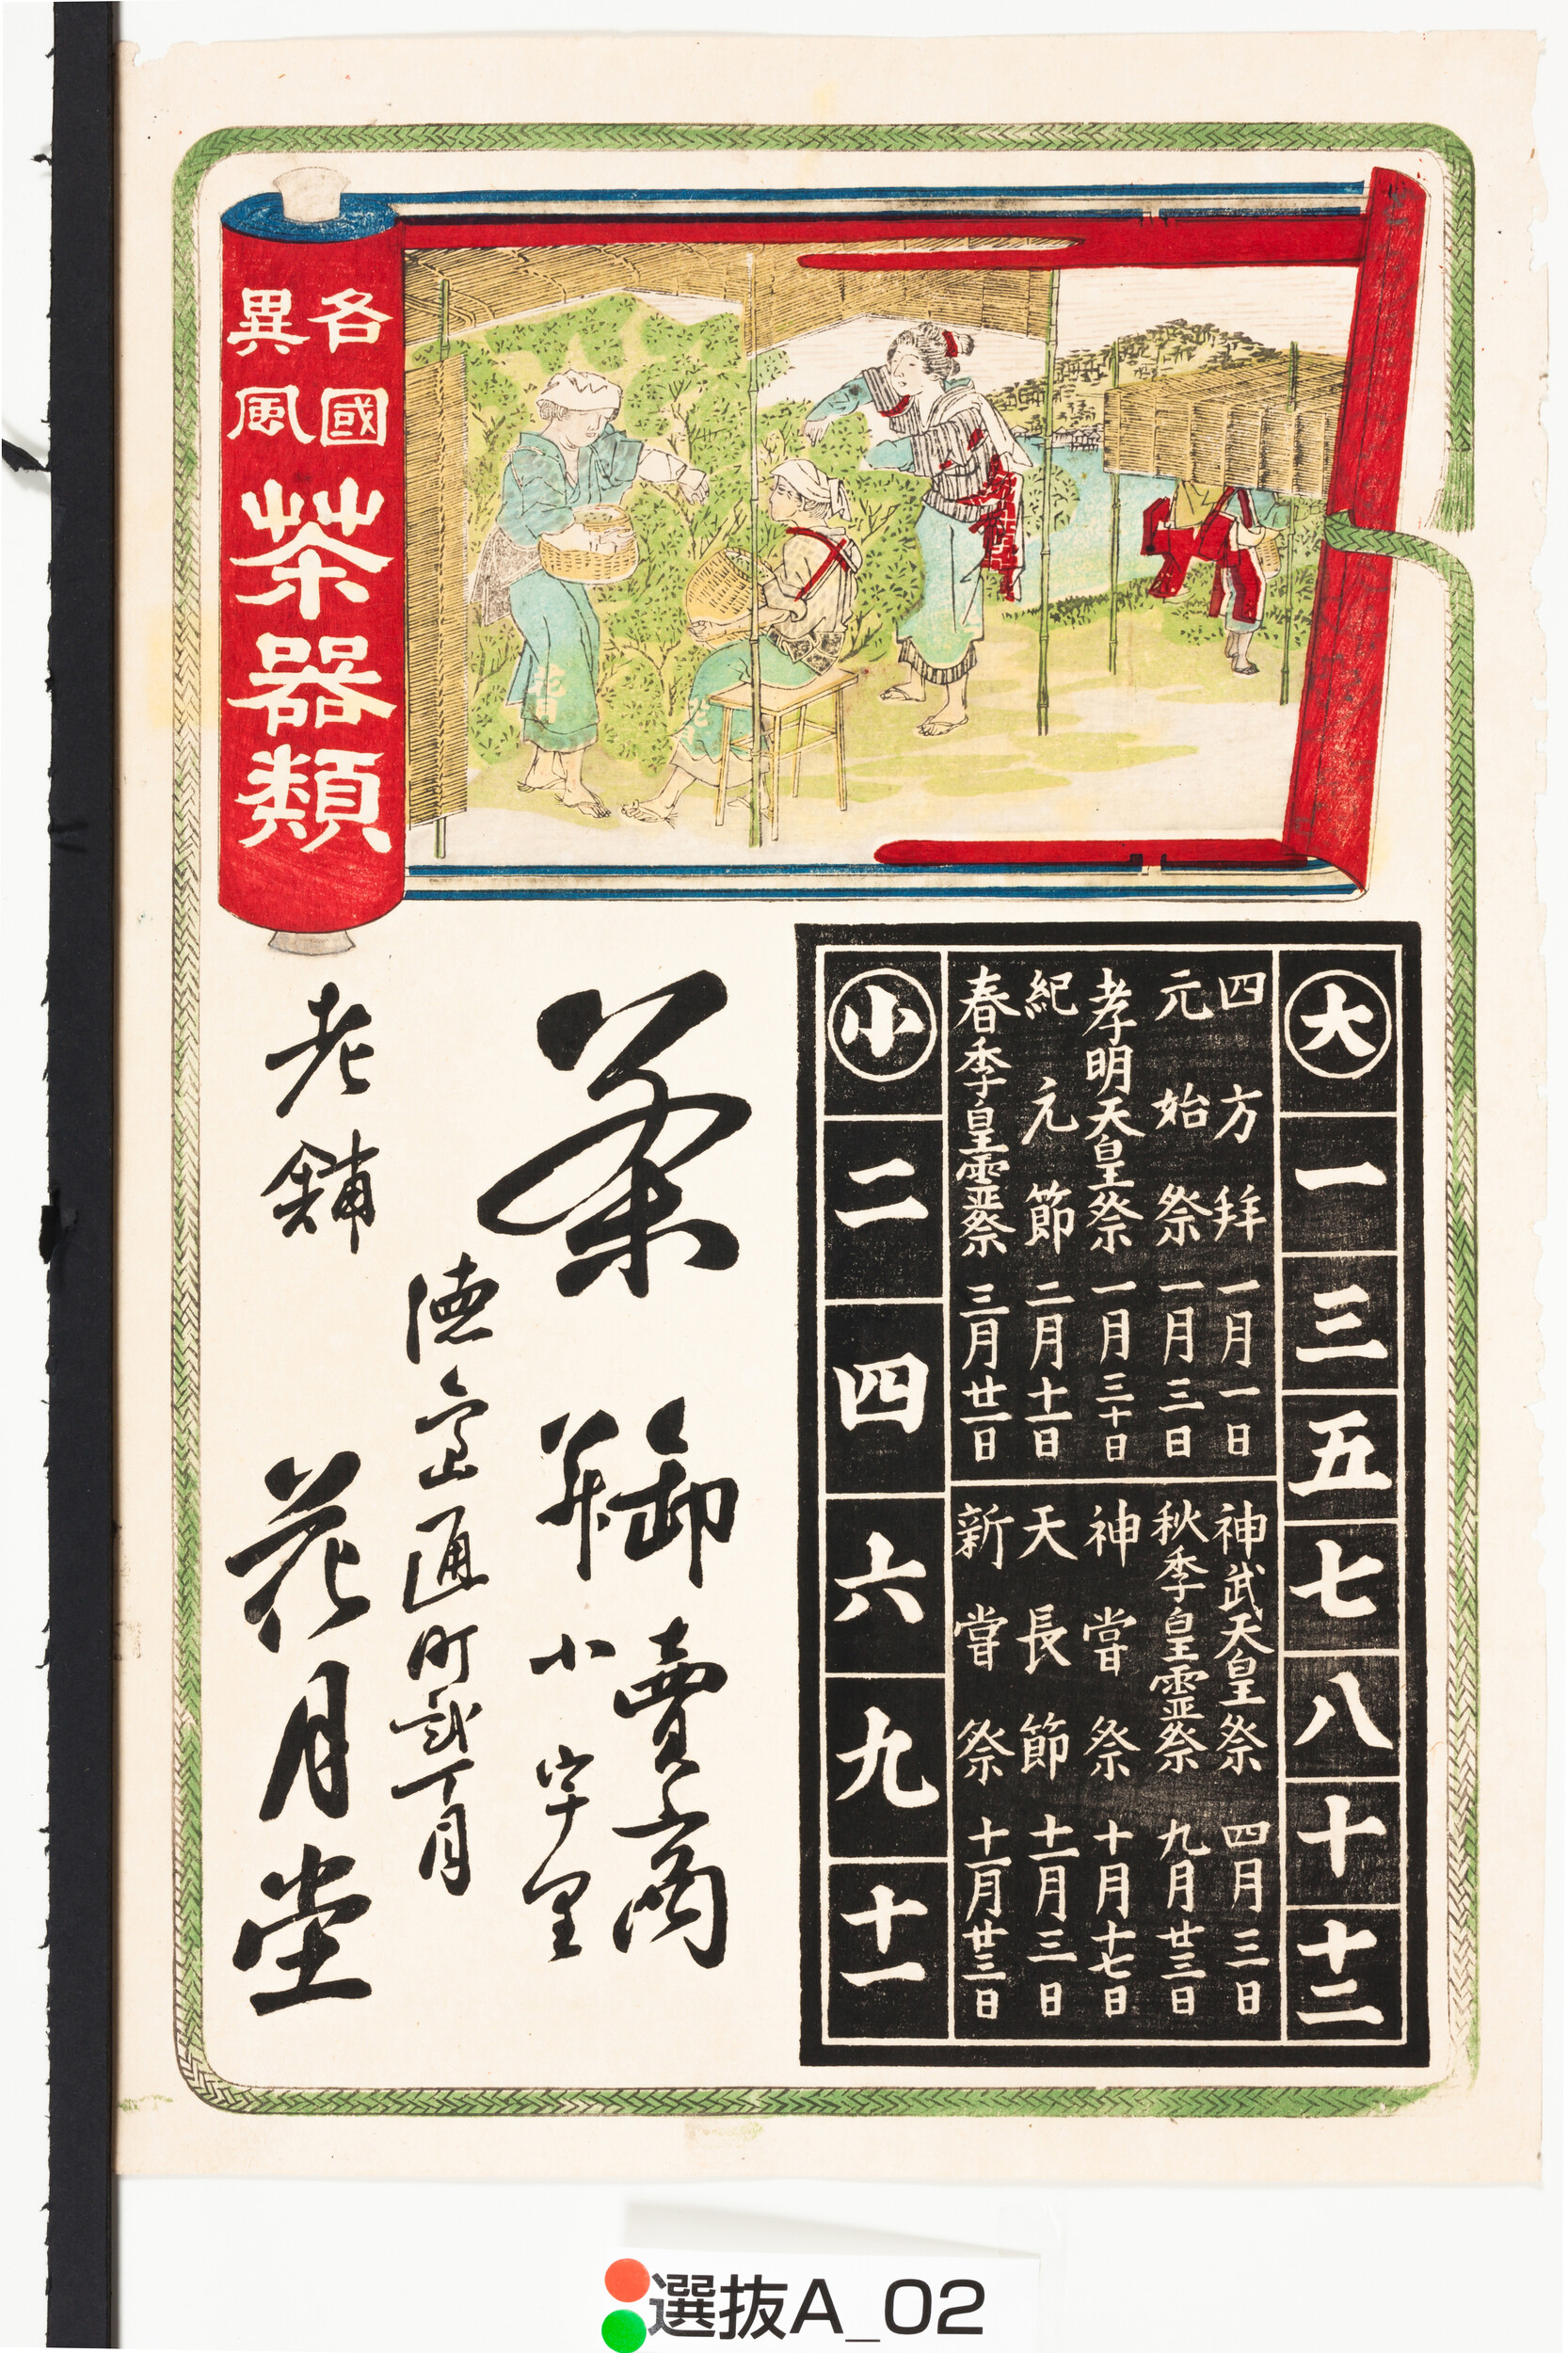 各國
異風
茶器類
大 一 三 五 七 八 十 十二
四方拝 一月一日
元始祭 一月三日
孝明天皇祭 一月三十日
紀元節 二月十一日
春季皇霊祭 三月廿一日
神武天皇祭 四月三日
秋季皇霊祭 九月廿三日
神嘗祭 十月十七日
天長節 十一月三日
新嘗祭 十一月廿三日
小 二 四 六 九 十一
茶
卸賣商
并小宇里
徳島通町弐丁目
老舗 花月堂
選抜A_02